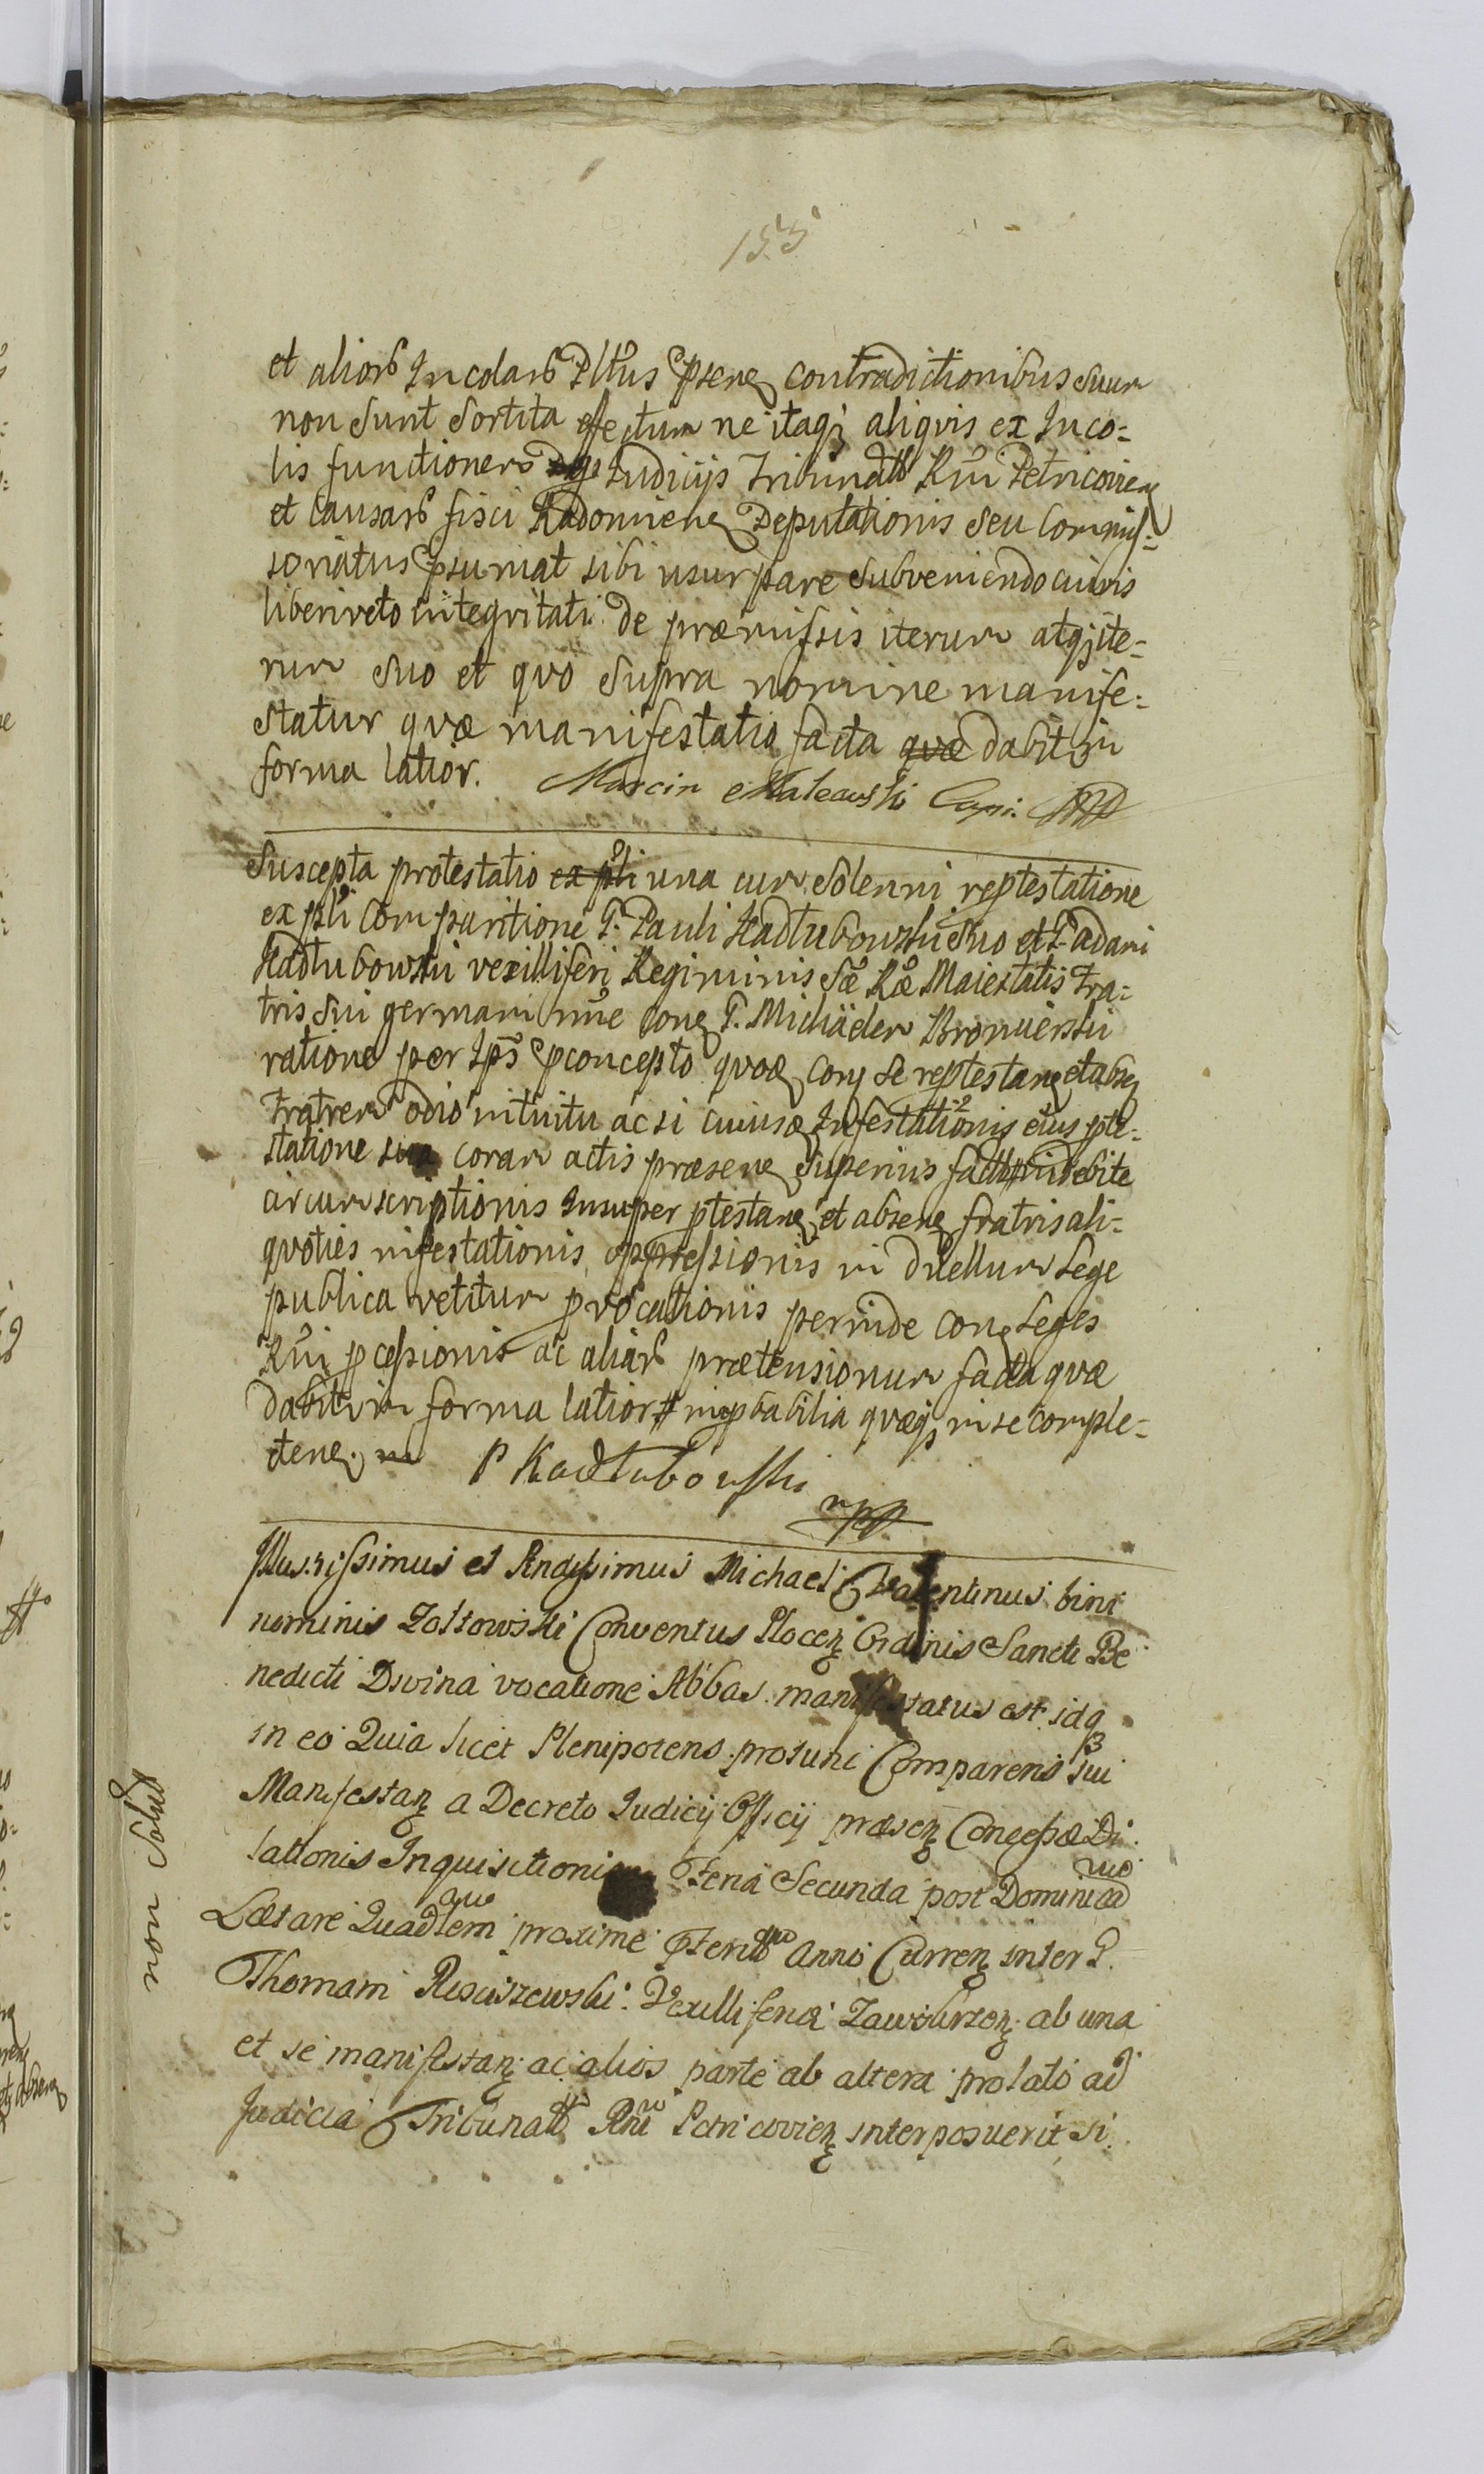 155
et alior Incolar Pltus psen contradictionibus suum
non sunt sortita effectum ne itaq aliqvis ex Inco=
lis functionem Judicijs Tribunal Rni Petricovien
et causar fisci Radomien Deputationis seu Commis=
soriatus psumat sibi usurpare subveniendo cuivis
liberi veto integritati de præmissis iterum atq ite=
rum suo et qvo supra nomine manife=
statur qvæ manifestatio facta qvæ dabit in
forma latior. Marcin Capi:
Suscepta protestatio ex pti una cum solenni reptestatione
ex pti Comparitione G. Pauli Kadłubowski suo et G. Adami
Kadłubowski vexilliferi Regiminis Sæ Ræ Maiestatis fra=
tris sui germani nne con G. Michäelem Bromierski
ratione per Ips pconcepto qvod con se reptestan et absen
fratrem odio intuitu ac si cuiusq Infestationis eius pte=
statione sua coram actis præsen superius fact indebite
circumscriptionis Insuper ptestan et absen fratris ali=
qvoties infestationis oppressionis in duellum Lege
publica vetitum pvocationis perinde con Leges
Rni pcessionis ac aliar prætensionum facta qvæ
dabit in forma latior inpbabilia qvæq in se comple=
cten. P Kadłubowski
mpp
Illustrissimus et Rndssimus Michael Valentinus bini
nominis Zołtowski Conventus Plocen Ordinis Sancti Be
nedicti Divina vocatione Abbas manifestatus est idq
in eo Quia licet Plenipotens protunc Comparens sui
Manifestan a Decreto Iudicij Officij præsen Concessæ Di
lationis Inquisitioni Feria Secunda post Dominicam
Lætare Quadlem proxime pterito Anni Curren inter G.
Thomam Rosciszewski Vexilliferum Zawskrzen ab una
et se manifestan ac alios parte ab altera prolato ad
Judicia Tribunal Rni Petricovien interposuerit si
non Solut